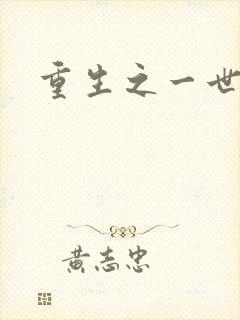 重生之一世
黄志忠